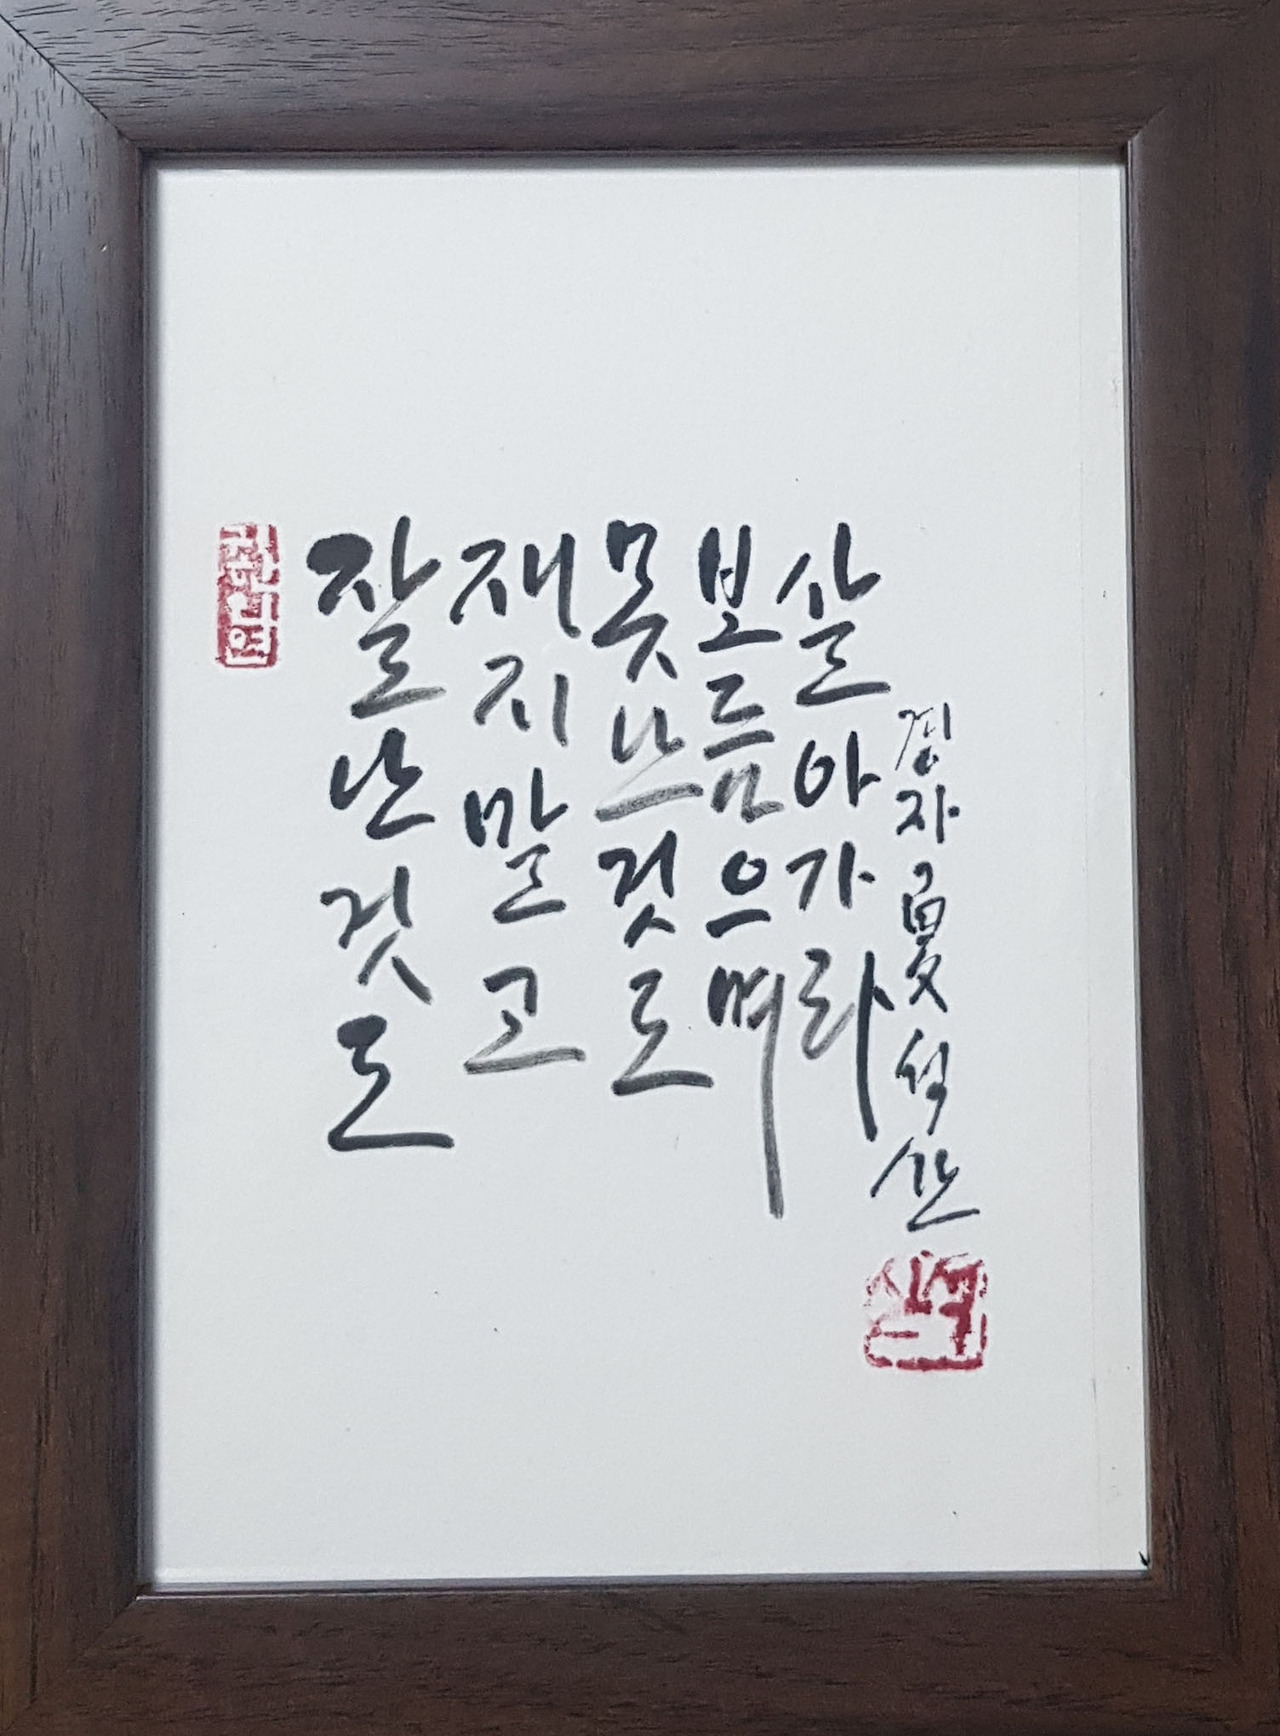 잘난것도
재지말고
못난것도
보듬으며
살아가라
경자夏석산
석산